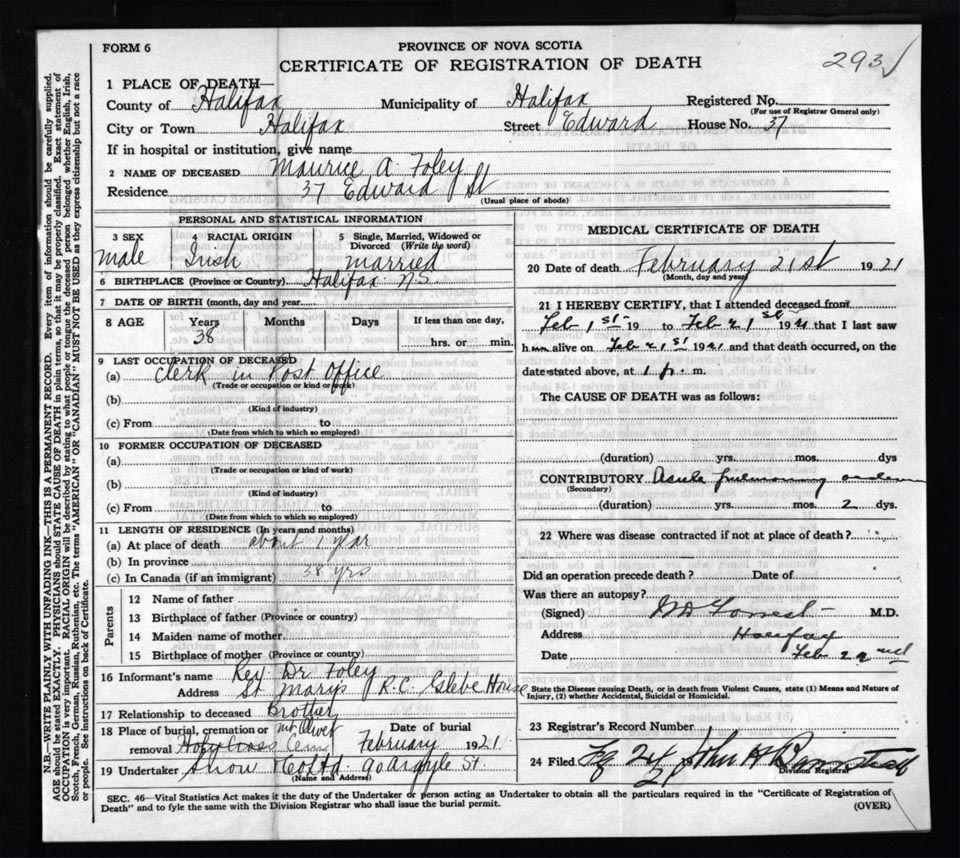 FORM 6
PROVINCE OF NOVA SCOTIA
CERTIFICATE OF REGISTRATION OF DEATH
293
1 PLACE OF DEATH—
County of Halifax Municipality of Halifax Registered No.
(For use of Registrar General only)
City or Town Halifax Street Edward House No. 37
If in hospital or institution, give name
2 NAME OF DECEASED Maurice A. Foley
Residence 37 Edward St
(Usual place of abode)
PERSONAL AND STATISTICAL INFORMATION
3 SEX 4 RACIAL ORIGIN 5 Single, Married, Widowed or
Divorced (Write the word)
Male Irish Married
6 BIRTHPLACE (Province or Country) Halifax N.S.
7 DATE OF BIRTH (month, day and year)
8 AGE Years Months Days If less than one day,
38 hrs. or min.
9 LAST OCCUPATION OF DECEASED
(a) Clerk in Post Office
(Trade or occupation or kind of work)
(b)
(Kind of industry)
(c) From to
(Date from which to which so employed)
10 FORMER OCCUPATION OF DECEASED
(a)
(Trade or occupation or kind of work)
(b)
(Kind of industry)
(c) From to
(Date from which to which so employed)
11 LENGTH OF RESIDENCE (In years and months)
(a) At place of death about 1 year
(b) In province
(c) In Canada (if an immigrant) 38 yrs
Parents
12 Name of father
13 Birthplace of father (Province or country)
14 Maiden name of mother
15 Birthplace of mother (Province or country)
16 Informant's name Rev. Dr Foley
Address St Marys R.C. Glebe House
17 Relationship to deceased Brother
18 Place of burial, cremation or Mt Olivet Date of burial
removal Holy Cross Cem February 1921
19 Undertaker Snow & Co Ltd 90 Argyle St.
(Name and Address)
MEDICAL CERTIFICATE OF DEATH
20 Date of death February 21st 1921
(Month, day and year)
21 I HEREBY CERTIFY, that I attended deceased from
Feb 1st 19 to Feb 21st 1921 that I last saw
him alive on Feb 21st 1921 and that death occurred, on the
date stated above, at 1 p. m.
The CAUSE OF DEATH was as follows:
(duration) yrs. mos. dys
CONTRIBUTORY Acute pulmonary oedema
(Secondary)
(duration) yrs. mos. 2 dys.
22 Where was disease contracted if not at place of death?
Did an operation precede death? Date of
Was there an autopsy?
(Signed) M.D.
Address Halifax
Date Feb 22nd
State the Disease causing Death, or in death from Violent Causes, state (1) Means and Nature of
Injury, (2) whether Accidental, Suicidal or Homicidal.
23 Registrar's Record Number
24 Filed 24 John A
Division Registrar
SEC. 46—Vital Statistics Act makes it the duty of the Undertaker or person acting as Undertaker to obtain all the particulars required in the "Certificate of Registration of
Death" and to fyle the same with the Division Registrar who shall issue the burial permit.
(OVER)
N.B.—WRITE PLAINLY WITH UNFADING INK—THIS IS A PERMANENT RECORD. Every item of information should be carefully supplied.
AGE should be stated EXACTLY. PHYSICIANS should STATE CAUSE OF DEATH in plain terms, so that it may be properly classified. Exact statement of
OCCUPATION is very important. RACIAL ORIGIN will be described by stating to what people or tongue the deceased person belonged whether English, Irish,
Scotch, French, German, Russian, Ruthenian, etc. The terms "AMERICAN" OR "CANADIAN" MUST NOT BE USED as they express citizenship but not a race
or people. See instructions on back of Certificate.